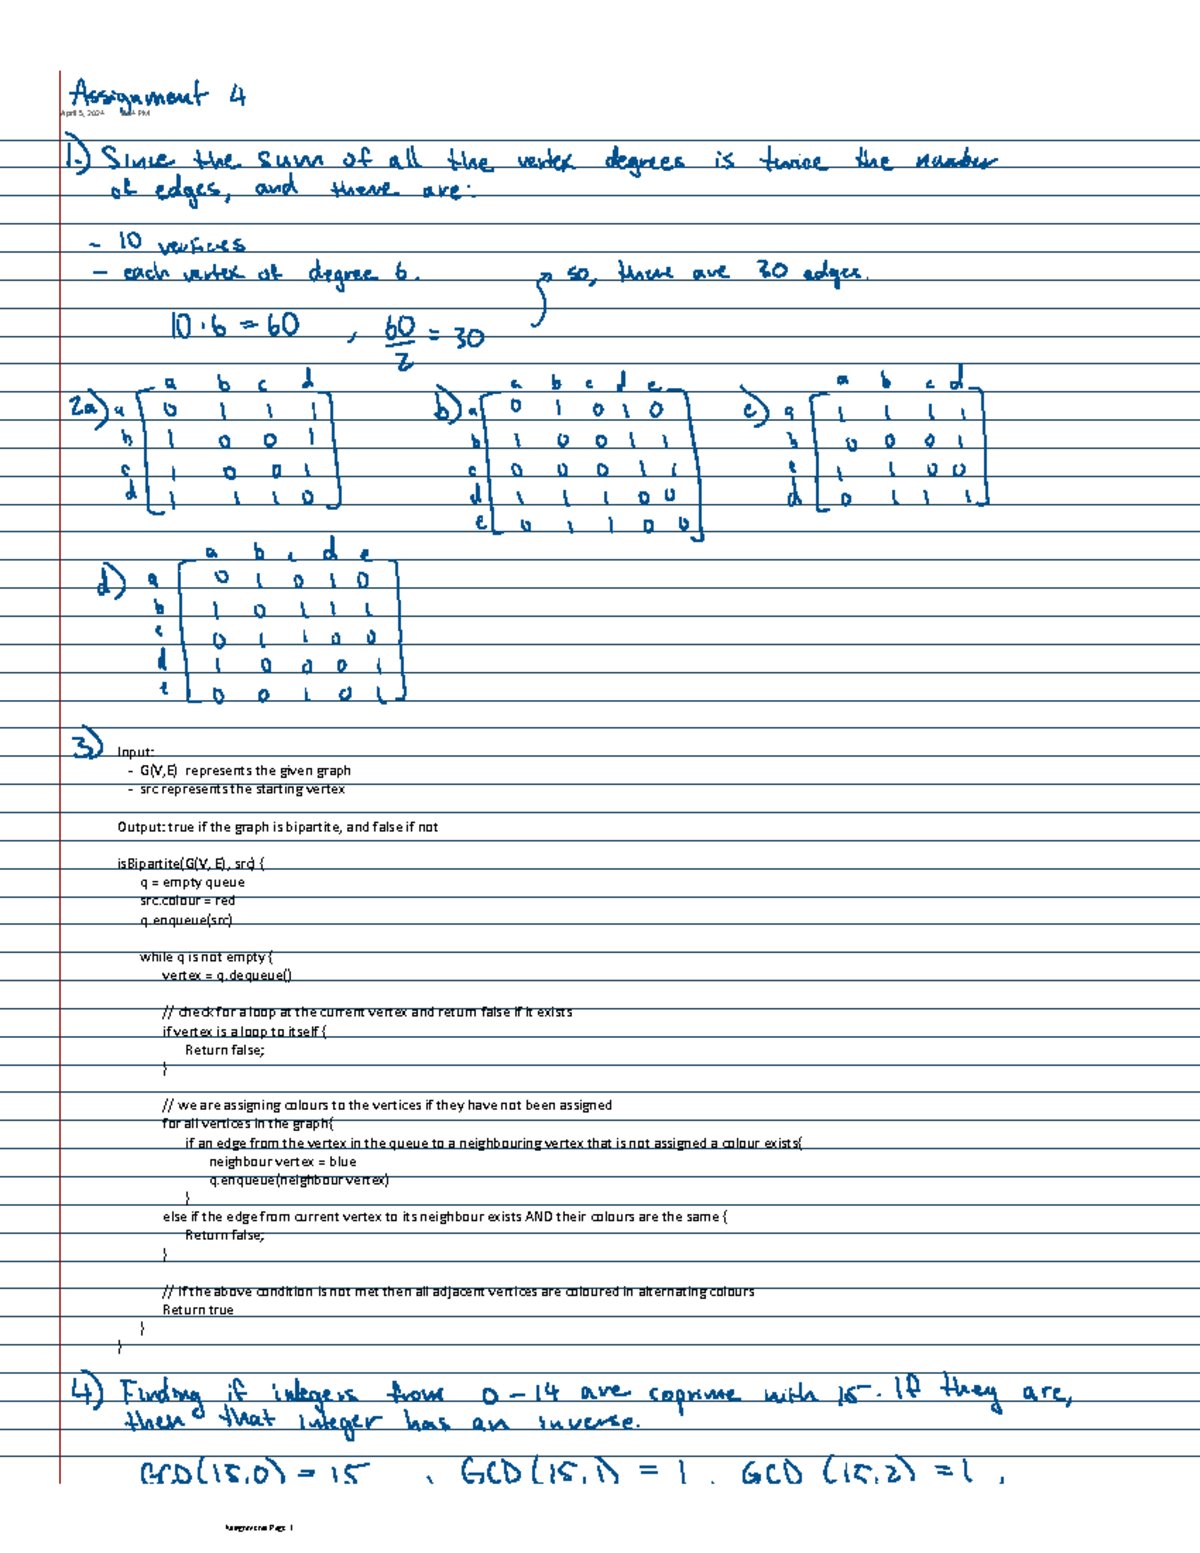 Assignment 4
April 5, 2024 PM
1.) Since the sum of all the vertex degrees is twice the number
of edges, and there are:
- 10 vertices
- each vertex of degree 6. so, there are 30 edges.
10 · 6 = 60 , 60/2 = 30
a b c d
2a) a 0 1 1 1
b 1 0 0 1
c 1 0 0 1
d 1 1 1 0
a b c d e
b) a 0 1 0 1 0
b 1 0 0 1 1
c 0 0 0 1 1
d 1 1 1 0 0
e 0 1 1 0 0
a b c d
c) a 1 1 1 1
b 0 0 0 1
c 1 1 0 0
d 0 1 1 1
a b c d e
d) a 0 1 0 1 0
b 1 0 1 1 1
c 0 1 1 0 0
d 1 0 0 0 1
e 0 0 1 0 1
3) Input:
- G(V,E) represents the given graph
- src represents the starting vertex
Output: true if the graph is bipartite, and false if not
isBipartite(G(V, E), src) {
q = empty queue
src.colour = red
q.enqueue(src)
while q is not empty {
vertex = q.dequeue()
// check for a loop at the current vertex and return false if it exists
if vertex is a loop to itself {
Return false;
}
// we are assigning colours to the vertices if they have not been assigned
for all vertices in the graph{
if an edge from the vertex in the queue to a neighbouring vertex that is not assigned a colour exists{
neighbour vertex = blue
q.enqueue(neighbour vertex)
}
else if the edge from current vertex to its neighbour exists AND their colours are the same {
Return false;
}
// if the above condition is not met then all adjacent vertices are coloured in alternating colours
Return true
}
}
4) Finding if integers from 0 - 14 are coprime with 15. If they are,
then that integer has an inverse.
GCD(15,0) = 15 , GCD(15,1) = 1 , GCD (15,2) = 1 ,
Page 1